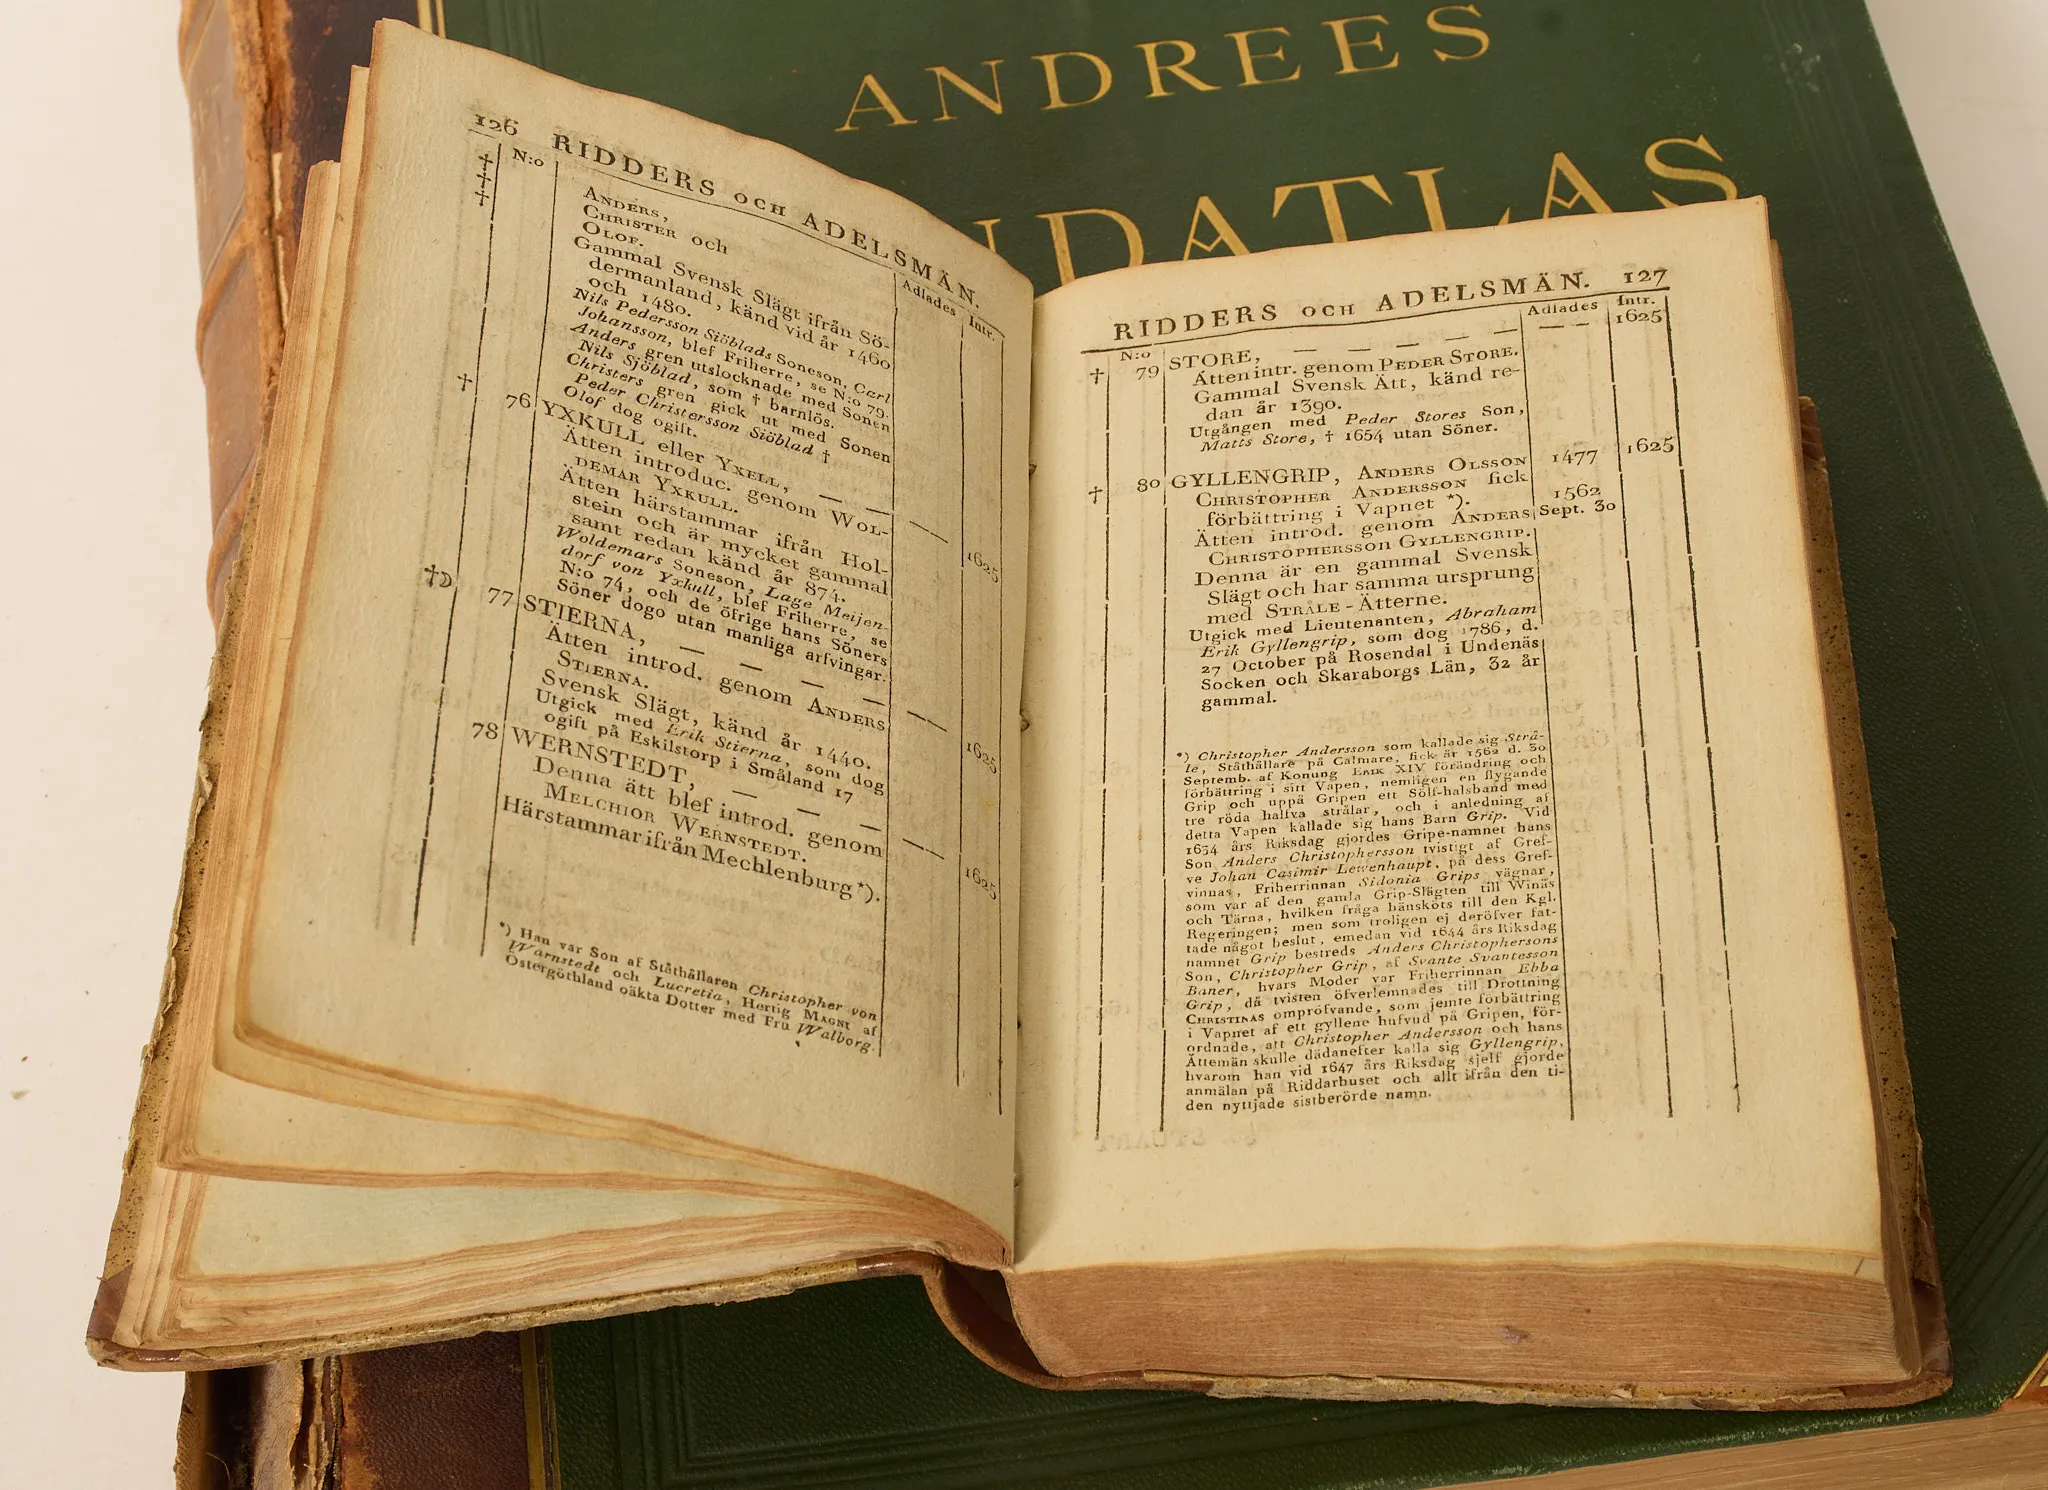 ANDREES
NDATLAS
126 RIDDERS OCH ADELSMÄN.
N:o
Adlades
Intr.
†
†
†
ANDERS,
CHRISTER och
OLOF.
Gammal Svensk Slägt ifrån Sö-
dermanland, känd vid år 1460
och 1480.
Nils Pedersson Siöblads Soneson, Carl
Johansson, blef Friherre, se N:o 79.
Anders gren utslocknade med Sonen
Nils Sjöblad, som † barnlös.
Christers gren gick ut med Sonen
Peder Christersson Siöblad †
Olof dog ogift.
† 76 YXKULL eller YXELL, — —
Ätten introduc. genom WOL- — — 1625
DEMAR YXKULL.
Ätten härstammar ifrån Hol-
stein och är mycket gammal
samt redan känd år 874.
Woldemars Soneson, Lage Meijen-
dorf von Yxkull, blef Friherre, se
N:o 74, och de öfrige hans Söners
Söner dogo utan manliga arfvingar.
77 STIERNA, — — — — — — 1625
Ätten introd. genom ANDERS
STIERNA.
Svensk Slägt, känd år 1440.
Utgick med Erik Stierna, som dog
ogift på Eskilstorp i Småland 17
78 WERNSTEDT, — — — — — 1625
Denna ätt blef introd. genom
MELCHIOR WERNSTEDT.
Härstammar ifrån Mechlenburg *).
*) Han var Son af Ståthållaren Christopher von
Warnstedt och Lucretia, Hertig MAGNI af
Östergöthland oäkta Dotter med Fru Walborg.
RIDDERS OCH ADELSMÄN. 127
N:o
Adlades
Intr.
† 79 STORE, — — — — — — — 1625
Ätten intr. genom PEDER STORE.
Gammal Svensk Ätt, känd re-
dan år 1390.
Utgången med Peder Stores Son,
Matts Store, † 1654 utan Söner.
† 80 GYLLENGRIP, ANDERS OLSSON 1477 1625
CHRISTOPHER ANDERSSON fick 1562
förbättring i Vapnet *). Sept. 30
Ätten introd. genom ANDERS
CHRISTOPHERSSON GYLLENGRIP.
Denna är en gammal Svensk
Slägt och har samma ursprung
med STRÅLE-Ätterne.
Utgick med Lieutenanten, Abraham
Erik Gyllengrip, som dog 1786, d.
27 October på Rosendal i Undenäs
Socken och Skaraborgs Län, 32 år
gammal.
*) Christopher Andersson som kallade sig Strå-
le, Ståthållare på Calmare, fick år 1562 d. 30
Septemb. af Konung ERIK XIV förändring och
förbättring i sitt Vapen, nemligen en flygande
Grip och uppå Gripen ett Sölf-halsband med
tre röda halfva strålar, och i anledning af
detta Vapen kallade sig hans Barn Grip. Vid
1634 års Riksdag gjordes Gripe-namnet hans
Son Anders Christophersson tvistigt af Gref-
ve Johan Casimir Lewenhaupt, på dess Gref-
vinnas, Friherrinnan Sidonia Grips vägnar,
som var af den gamla Grip-Slägten till Winäs
och Tärna, hvilken fråga hänsköts till den Kgl.
Regeringen; men som troligen ej deröfver fat-
tade något beslut, emedan vid 1644 års Riksdag
namnet Grip bestreds Anders Christophersons
Son, Christopher Grip, af Svante Svantesson
Baner, hvars Moder var Friherrinnan Ebba
Grip, då tvisten öfverlemnades till Drottning
CHRISTINAS ompröfvande, som jemte förbättring
i Vapnet af ett gyllene hufvud på Gripen, för-
ordnade, att Christopher Andersson och hans
Ättemän skulle dädanefter kalla sig Gyllengrip,
hvarom han vid 1647 års Riksdag sjelf gjorde
anmälan på Riddarhuset och allt ifrån den ti-
den nyttjade sistberörde namn.